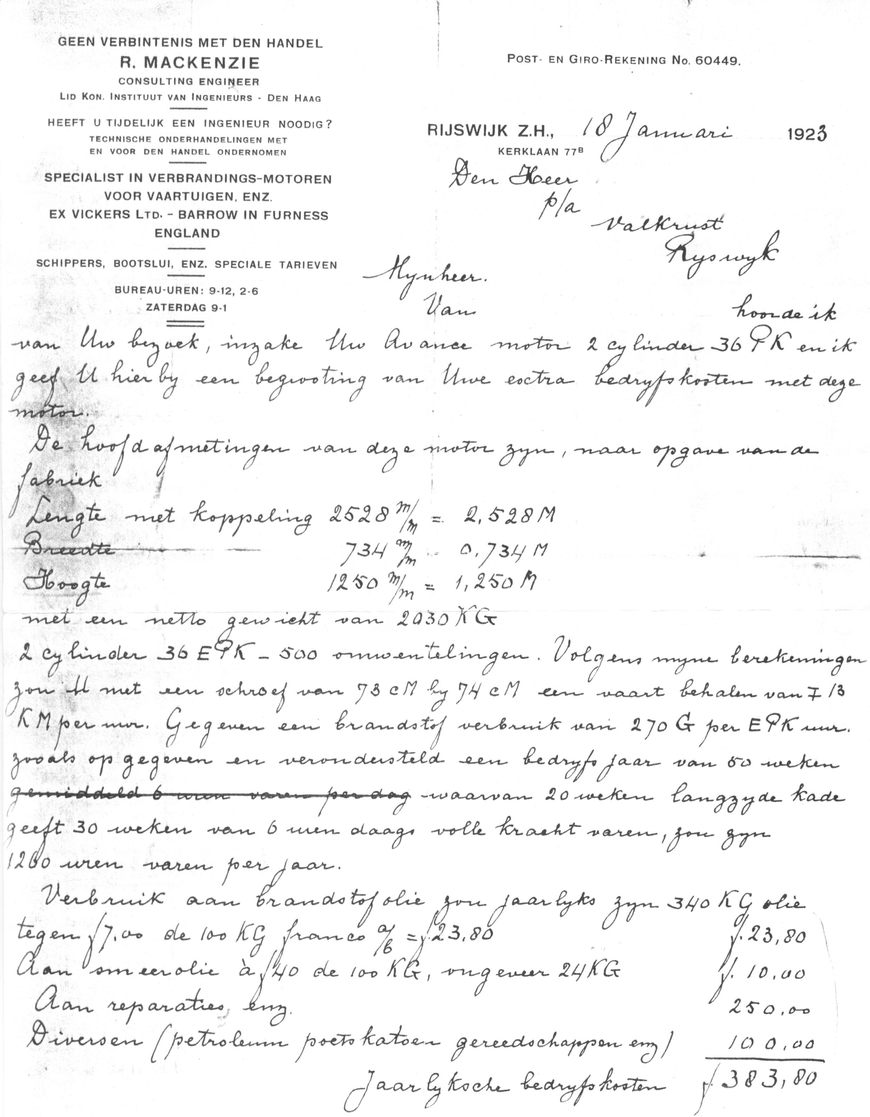 GEEN VERBINTENIS MET DEN HANDEL
R. MACKENZIE
CONSULTING ENGINEER
LID KON. INSTITUUT VAN INGENIEURS - DEN HAAG
HEEFT U TIJDELIJK EEN INGENIEUR NOODIG?
TECHNISCHE ONDERHANDELINGEN MET
EN VOOR DEN HANDEL ONDERNOMEN
SPECIALIST IN VERBRANDINGS-MOTOREN
VOOR VAARTUIGEN, ENZ.
EX VICKERS LTD. - BARROW IN FURNESS
ENGLAND
SCHIPPERS, BOOTSLUI, ENZ. SPECIALE TARIEVEN
BUREAU-UREN: 9-12, 2-6
ZATERDAG 9-1
POST- EN GIRO-REKENING No. 60449.
RIJSWIJK Z.H., 18 Januari 1923
KERKLAAN 77B
Den Heer
p/a
Valkrust
Ryswyk
Mynheer.
Van hoorde ik
van Uw bezoek, inzake Uw Avance motor 2 cylinder 36 PK en ik
geef U hierby een begrooting van Uwe extra bedryfskosten met deze
motor.
De hoofdafmetingen van deze motor zyn, naar opgave van de
fabriek
Lengte met koppeling 2528 m/m = 2,528 M
Breedte 734 m/m - 0,734 M
Hoogte 1250 m/m = 1,250 M
met een netto gewicht van 2030 KG
2 cylinder 36 EPK - 500 omwentelingen. Volgens myne berekeningen
zou U met een schroef van 73 cM by 74 cM een vaart behalen van ± 13
KM per uur. Gegeven een brandstof verbruik van 270 G per EPK uur.
zooals opgegeven en verondersteld een bedryfsjaar van 50 weken
gemiddeld 6 uren varen per dag waarvan 20 weken langzyde kade
geeft 30 weken van 6 uren daags volle kracht varen, zou zyn
1260 uren varen per jaar.
Verbruik aan brandstofolie zou jaarlyks zyn 340 KG olie
tegen f7,00 de 100 KG franco a/b = f.23,80 f.23,80
Aan smeerolie à f40 de 100 KG, ongeveer 24 KG f. 10,00
Aan reparaties, enz. 250,00
Diversen (petroleum poetskatoen gereedschappen enz) 100,00
Jaarlyksche bedryfskosten f.383,80